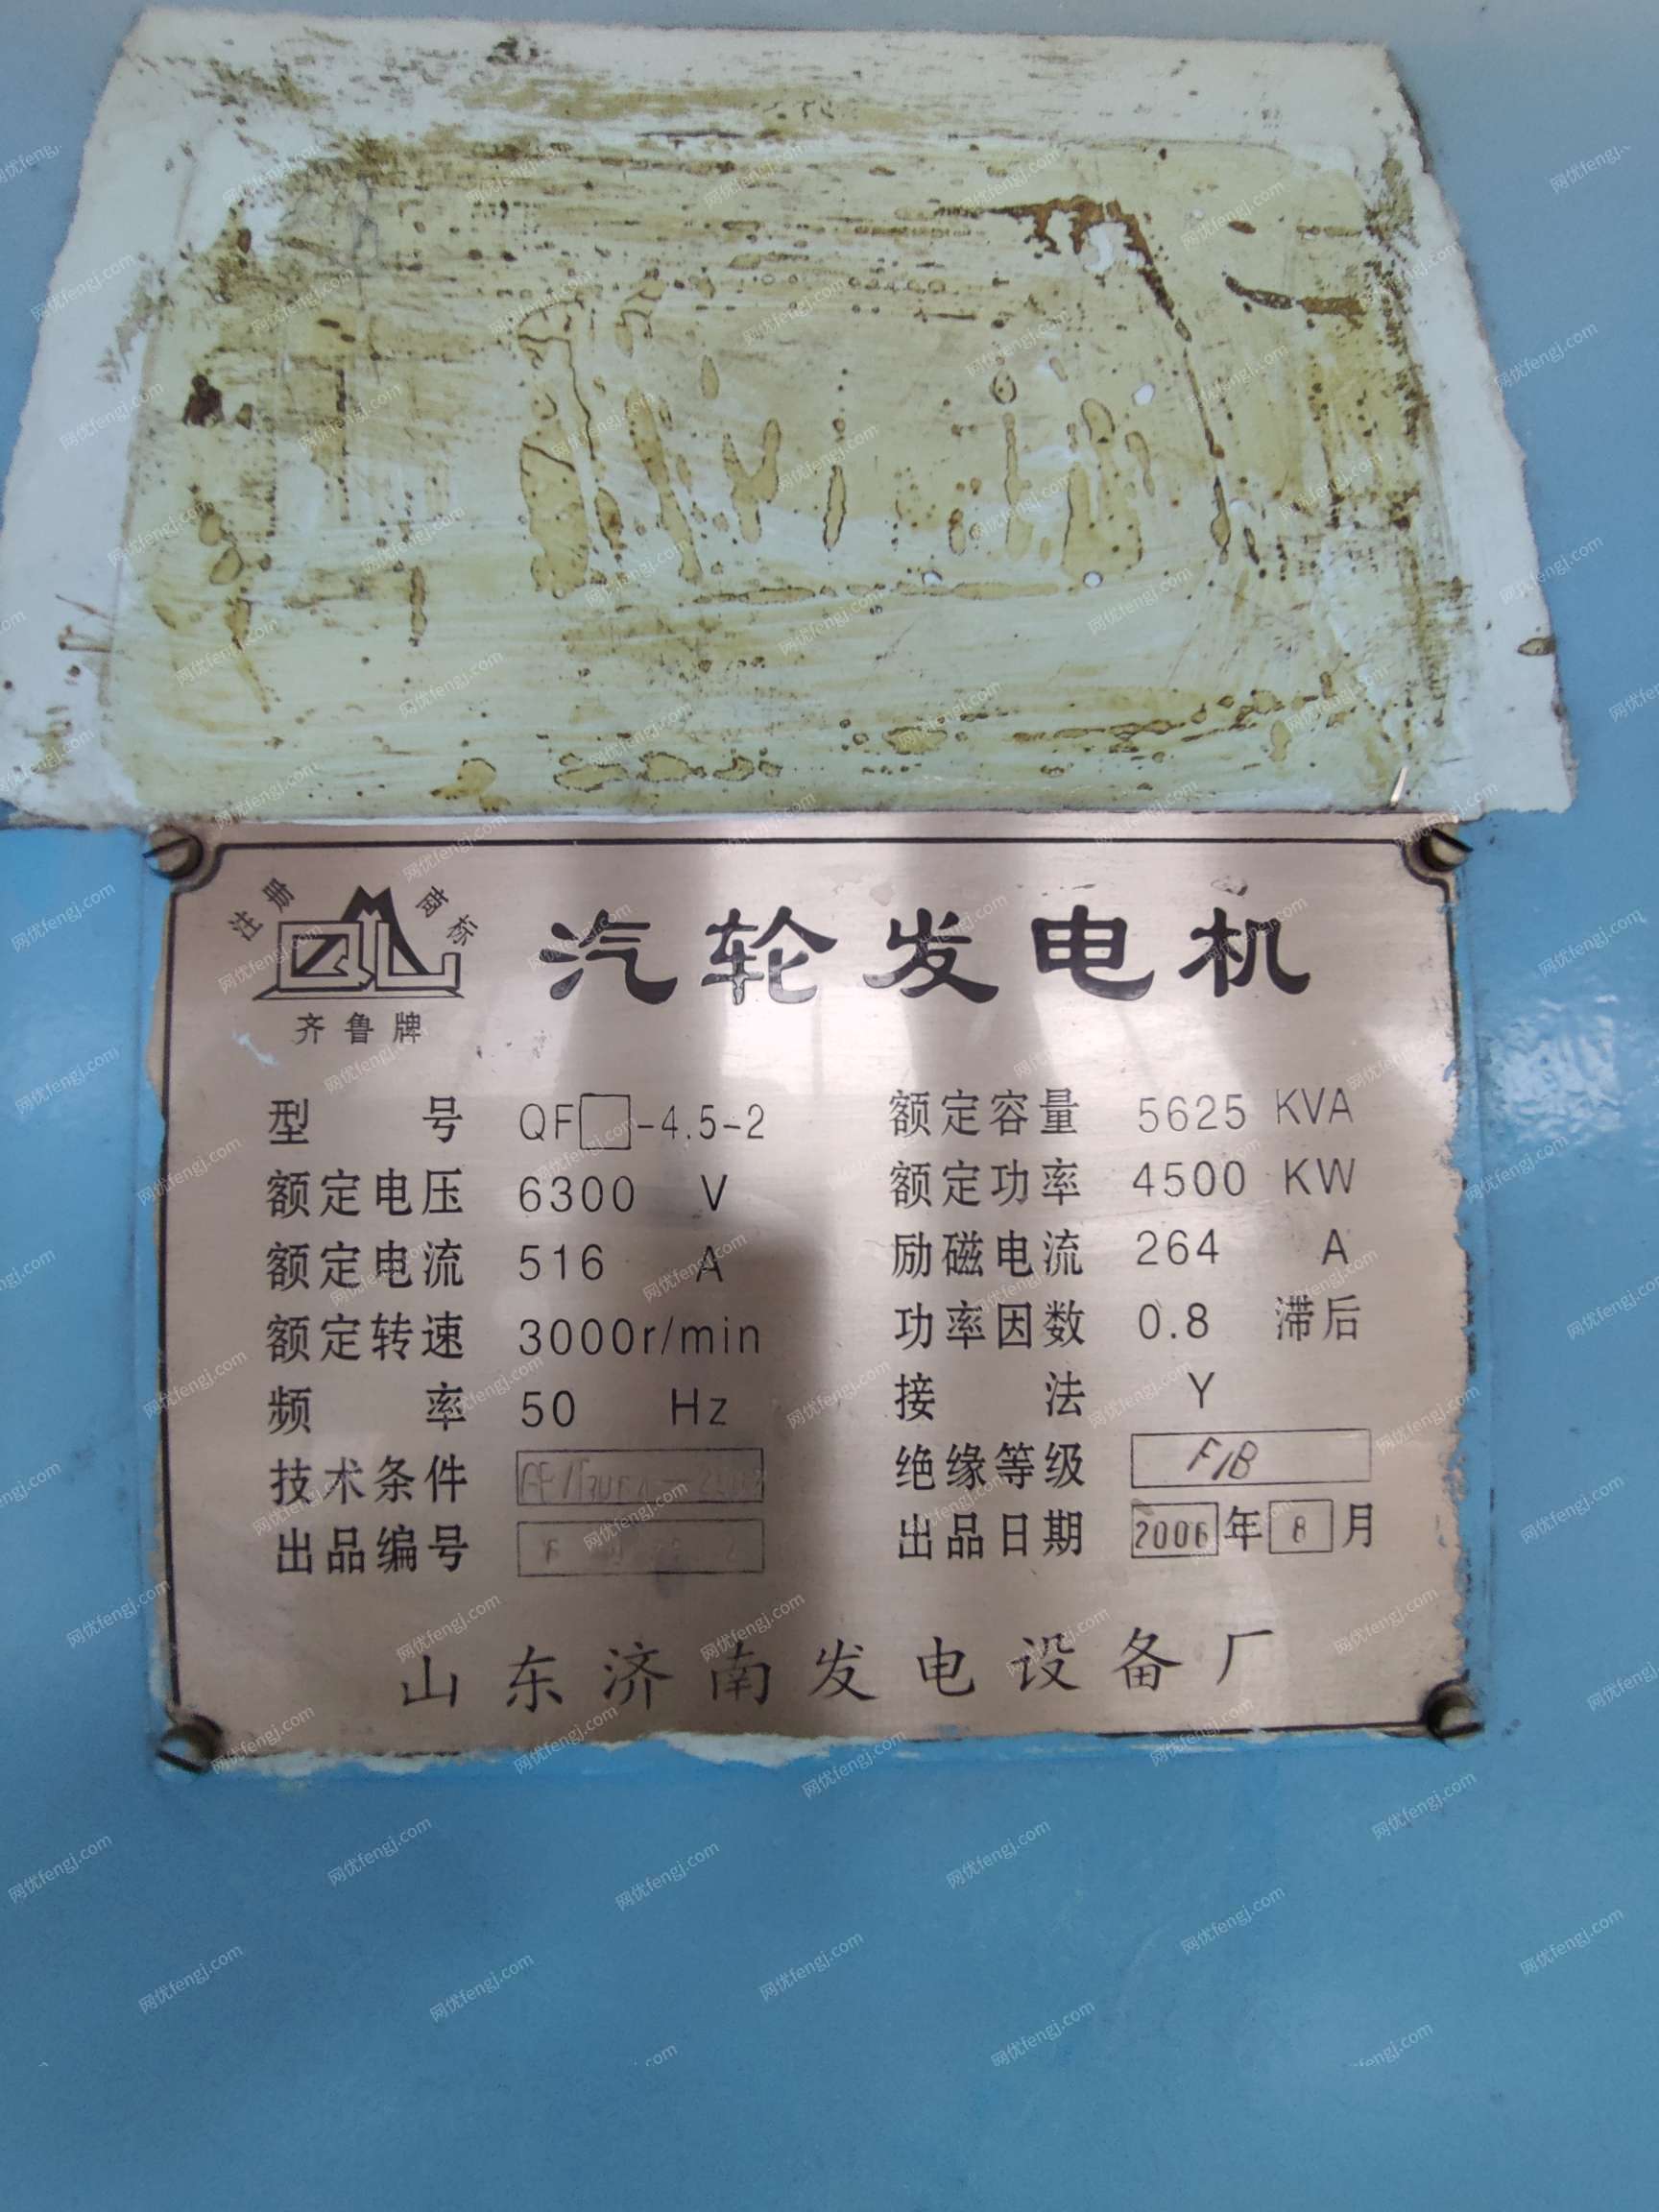 注册商标
QL
齐鲁牌
汽轮发电机
型号 QF□-4.5-2 额定容量 5625 KVA
额定电压 6300 V 额定功率 4500 KW
额定电流 516 A 励磁电流 264 A
额定转速 3000r/min 功率因数 0.8 滞后
频率 50 Hz 接法 Y
技术条件 绝缘等级 F/B
出品编号 出品日期 2006年8月
山东济南发电设备厂
网优fengj.com